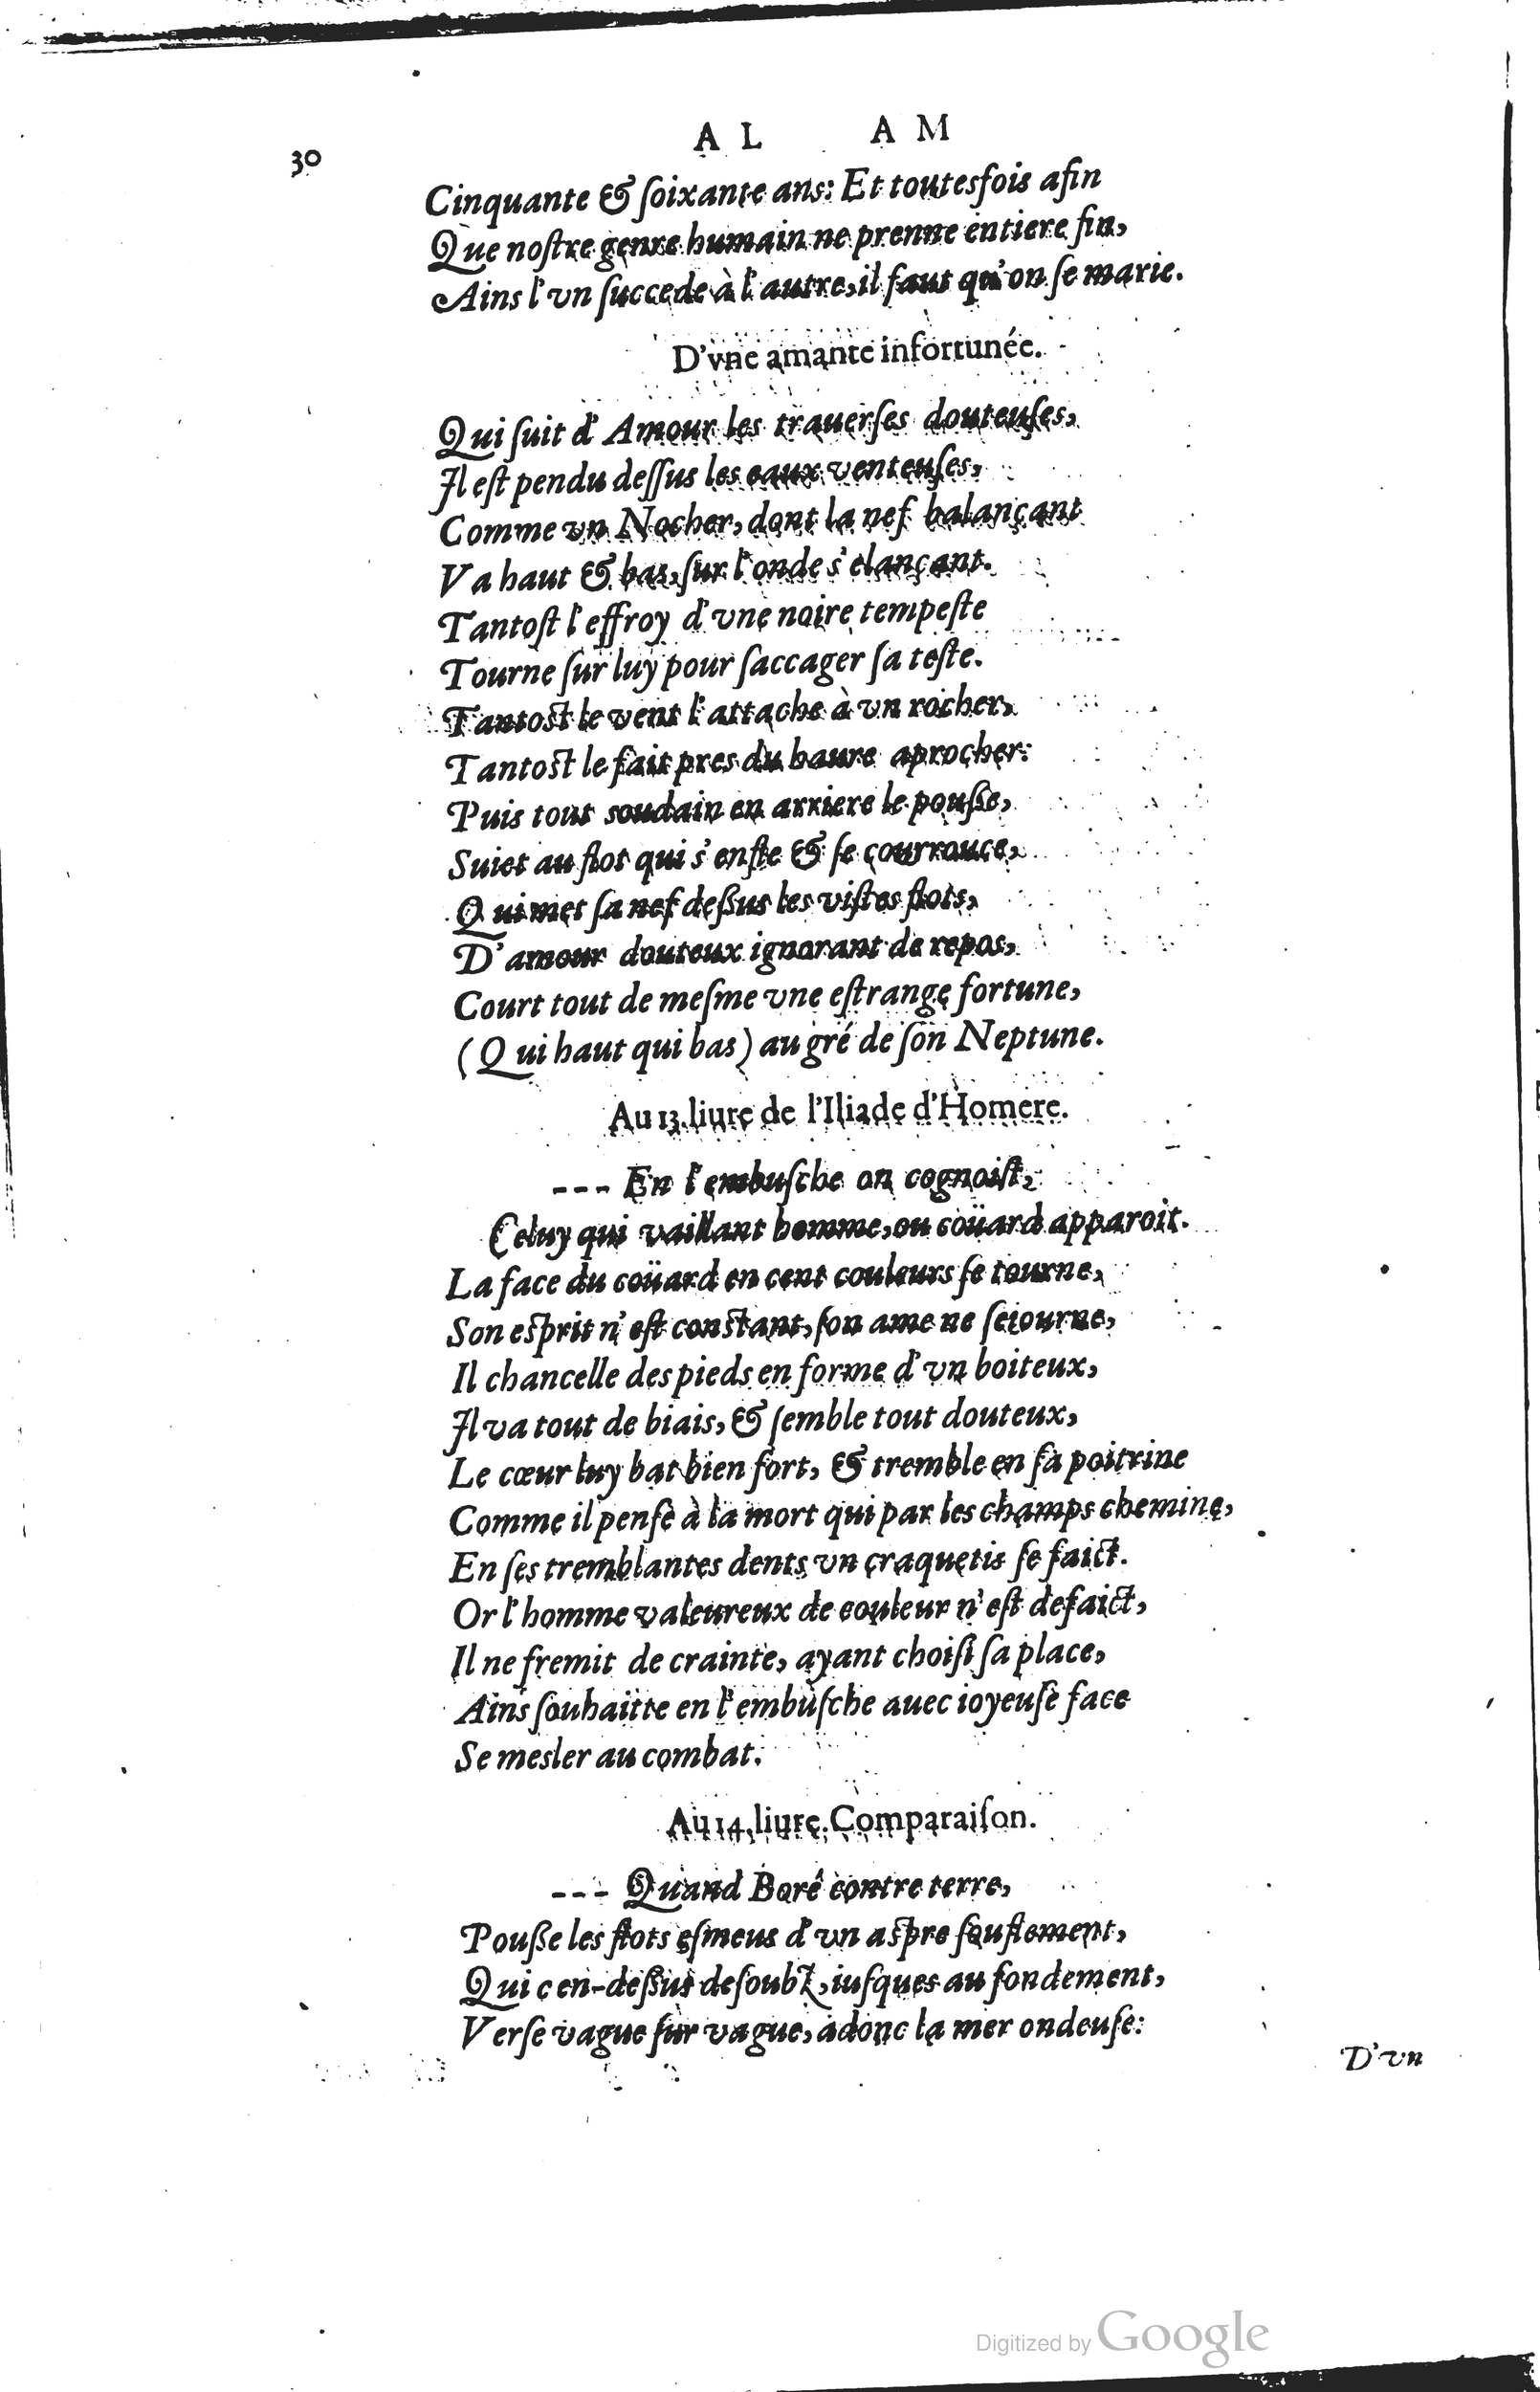 30
AL AM
Cinquante & ſoixante ans: Et toutesfois afin
Que noſtre genre humain ne prenne entiere fin,
Ains l'vn ſuccede à l'autre, il faut qu'on ſe marie.
D'vne amante infortunée.
Qui ſuit d'Amour les trauerſes douteuſes,
Il eſt pendu deſſus les eaux venteuſes,
Comme vn Nocher, dont la nef balançant
Va haut & bas, ſur l'onde s'elançant.
Tantoſt l'effroy d'vne noire tempeſte
Tourne ſur luy pour ſaccager ſa teſte.
Tantoſt le vent l'attache à vn rocher,
Tantoſt le fait pres du haure aprocher:
Puis tout soudain en arriere le pouſſe,
Suiet au flot qui s'enfle & ſe courrouce,
Qui met ſa nef deſſus les viſtes flots,
D'amour douteux ignorant de repos,
Court tout de meſme vne eſtrange fortune,
(Qui haut qui bas) au gré de ſon Neptune.
Au 13. liure de l'Iliade d'Homere.
--- En l'embuſche on cognoiſt,
Celuy qui vaillant homme, ou coüard apparoit.
La face du coüard en cent couleurs ſe tourne,
Son esprit n'eſt conſtant, ſon ame ne ſeiourne,
Il chancelle des pieds en forme d'vn boiteux,
Il va tout de biais, & ſemble tout douteux,
Le cœur luy bat bien fort, & tremble en ſa poitrine
Comme il penſe à la mort qui par les champs chemine,
En ſes tremblantes dents vn craquetis ſe faict.
Or l'homme valeureux de couleur n'eſt defaict,
Il ne fremit de crainte, ayant choiſi ſa place,
Ains ſouhaitte en l'embuſche auec ioyeuſe face
Se mesler au combat.
Au 14. liure. Comparaiſon.
--- Quand Boré contre terre,
Pouſſe les flots eſmeus d'vn aspre ſouflement,
Qui c en-deſſus deſoubz, iuſques au fondement,
Verſe vague ſur vague, adonc la mer ondeuſe:
D'vn
Digitized by Google